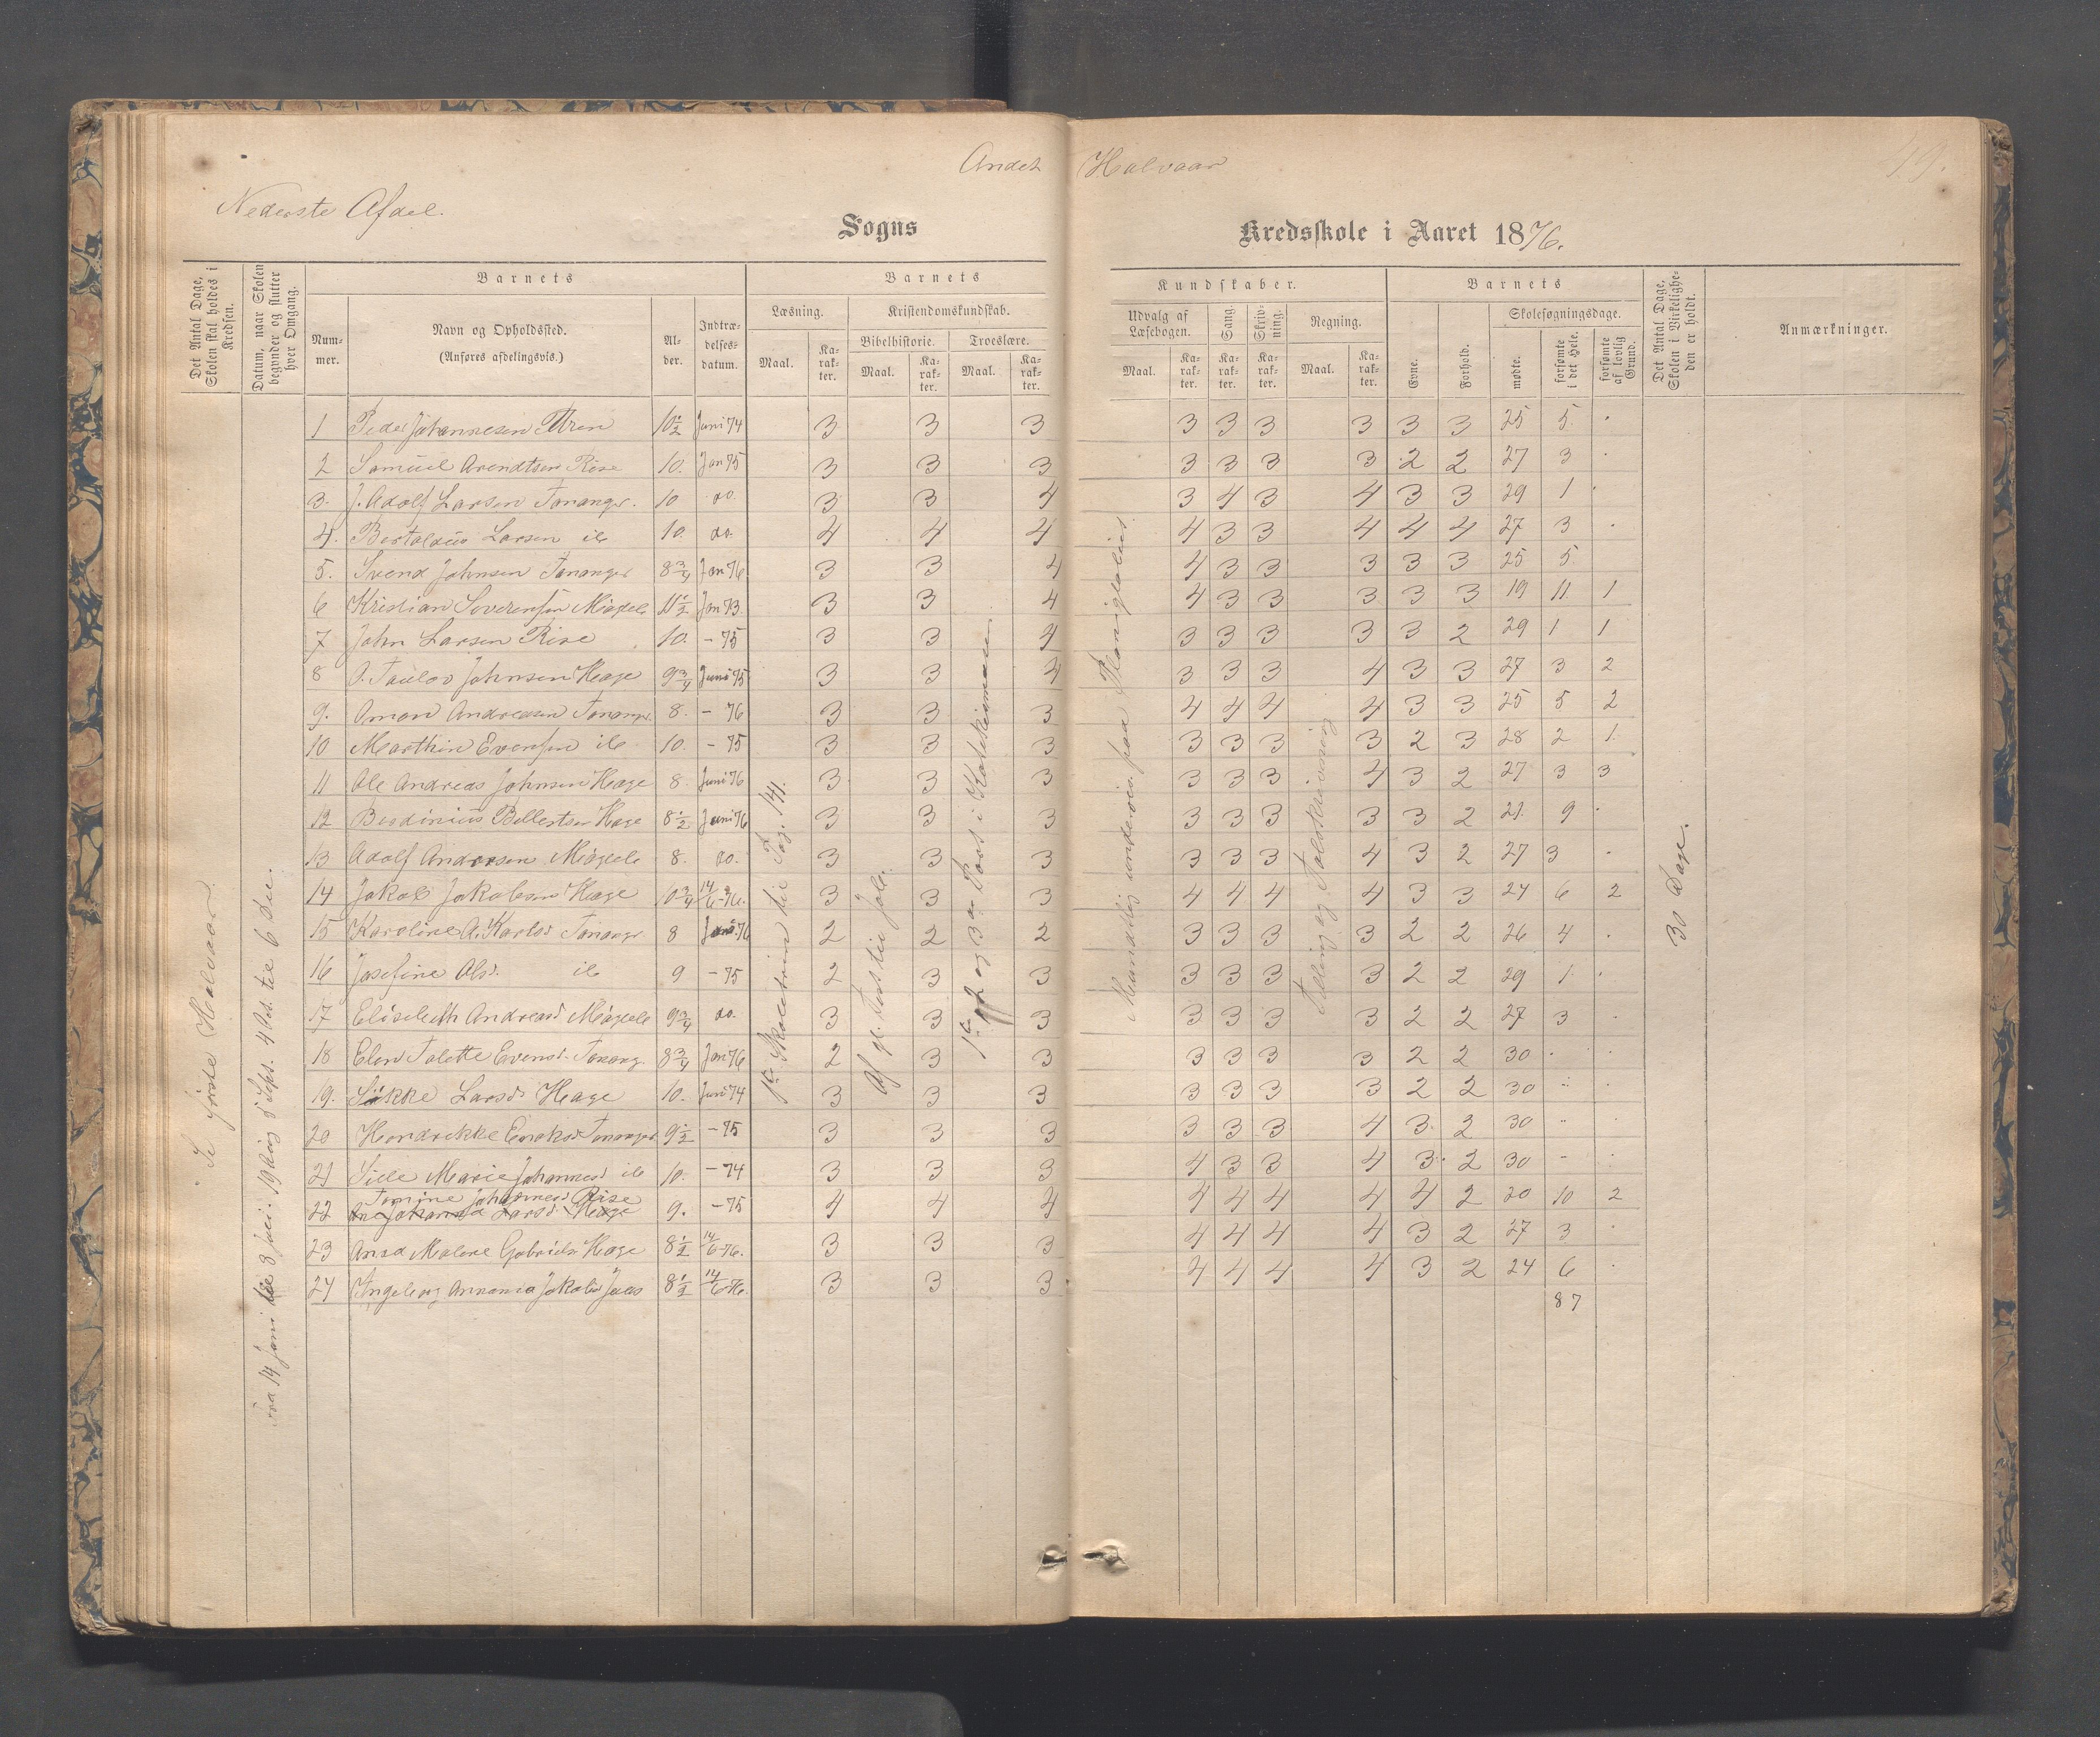 Andet Halvaar
19.
Nederste Afdel.
Sogns Kredsskole i Aaret 1876.
Det Antal Dage, Skolen skal holdes i Kredsen.
Datum, naar Skolen begynder og slutter hver Omgang.
Barnets
Num-mer.
Navn og Opholdssted.
(Anføres afdelingsvis.)
Al-der.
Indtræ-delses-datum.
Barnets Kundskaber.
Læsning.
Maal.
Ka-rak-ter.
Kristendomskundskab.
Bibelhistorie.
Maal.
Ka-rak-ter.
Troeslære.
Maal.
Ka-rak-ter.
Udvalg af Læsebogen.
Maal.
Ka-rak-ter.
Sang.
Ka-rak-ter.
Skriv-ning.
Ka-rak-ter.
Regning.
Maal.
Ka-rak-ter.
Barnets
Evne.
Forhold.
Skolesøgningsdage.
mødte.
forsømte i det Hele.
forsømte af lovlig Grund.
Det Antal Dage, Skolen i Virkelighe-den er holdt.
Anmærkninger.
1 Peder Johannesen 10½ Juni 74 3 3 3 3 3 3 3 3 3 25 5 .
2 Samuel Arendtsen Rise 10. Jan 75 3 3 3 3 3 3 3 2 2 27 3 .
3. J. Adolf Larsen Tananger. 10 do. 3 3 4 3 4 3 4 3 3 29 1 .
4. Bertolaus Larsen ib 10. do. 4 4 4 4 3 3 4 4 4 27 3 .
5. Svend Johnsen Tananger 8¾ Jan 76 3 3 4 4 3 3 3 3 3 25 5
6 Kristian Soverensen 11½ Jan 73. 3 3 4 4 3 3 3 3 3 19 11 1
7 John Larsen Rise 10. - 75 3 3 4 3 3 3 3 3 2 29 1 1
8 O. Taulov Johnsen Hage 9¾ Juni 75 3 3 4 3 3 3 4 3 3 27 3 2
9. Amon Andreasen Tananger. 8. - 76 3 3 3 4 4 4 4 3 3 25 5 2
10 Marthin Evensen ib 10. - 75 3 3 3 3 3 3 3 2 3 28 2 1.
11 Ole Andreas Johnsen Hage 8. Juni 76 3 3 3 3 3 3 4 3 2 27 3 3
12 Berdinius Bellertsen Hage 8½ Juni 76 3 3 3 3 3 3 3 3 2 21. 9 .
13 Adolf Andersen 8. do. 3 3 3 3 3 3 4 3 2 27 3 .
14 Jakob Jakobsen Hage 10¾ 14/6-76. 3 3 3 4 4 4 4 3 3 24 6 2
15 Karoline A. Karlsd Tananger 8 Juni 76 2 2 2 3 3 3 3 2 2 26 4 .
16 Josefine Olsd. ib 9 - 75 2 3 3 3 3 3 3 2 2 29 1. .
17 Elisebeth Andreasd 9¾ do. 3 3 3 3 3 3 3 2 2 27 3 .
18 Elen Talette Evensd. Tanang. 8¾ Jan 76 2 3 3 3 3 3 3 2 2 30 . .
19. Sikke Larsd Hage 10. Juni 74 3 3 3 3 3 3 3 2 2 30 .. .
20 Hendrikke Enoksd Tananger 9½ - 75 3 3 3 3 3 3 4 3. 2 30 ..
21 Sille Marie Johannesd ib 10. - 74 3 3 3 4 3 3 4 3. 2 30 - .
Tomine Johannesd Rise
22 Ane Johanna Larsd Hage 9. - 75 4 4 4 4 4 4 4 4 2 20 10 2
23 Anna Malene Gabrielsd Hage 8½ 14/6-76. 3 3 3 4 4 4 4 3 2 27 3 .
24 Ingeborg Annania Jakobsd 8½ 14/6-76. 3 3 3 4 4 4 4 3 2 24 6 .
87
Se første Halvaar.
Fra 14 juni til 8 juli. 19 Aug 5 Sept. 4 Oct. til 6 Dec.
Skoletrin til Pag. 141.
Af gl. Test. til Job.
1ste og 3die Part i Katekismen
Mundtlig underviis. paa
Telling og Talskrivning
30 Dage.